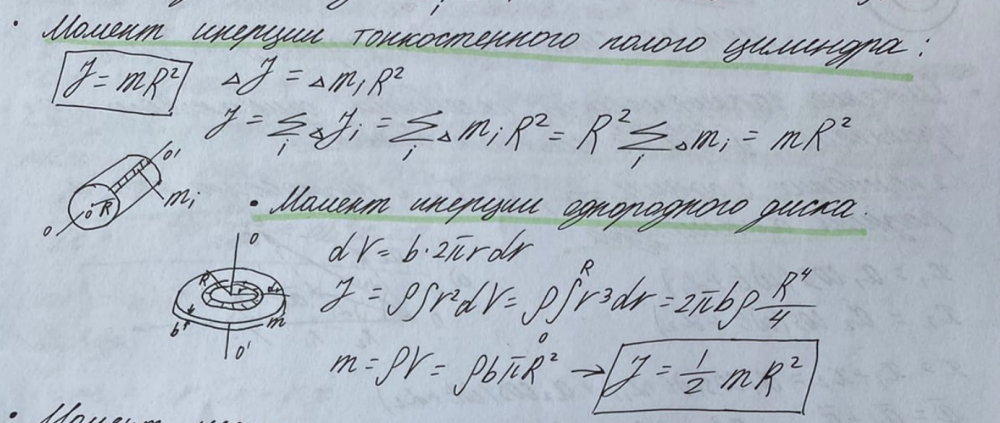 • Момент инерции тонкостенного полого цилиндра:
J = mR² ΔJ = Δmᵢ R²
J = Σᵢ ΔJᵢ = Σᵢ Δmᵢ R² = R² Σᵢ Δmᵢ = mR²
O'
R
O
O
mᵢ
• Момент инерции однородного диска.
dV = b·2πrdr
J = ρ∫r²dV = ρ∫₀ᴿ r³dr = 2πbρ R⁴/4
m = ρV = ρbπR² → J = 1/2 mR²
O
R
r
dr
b
m
O'
• Момент